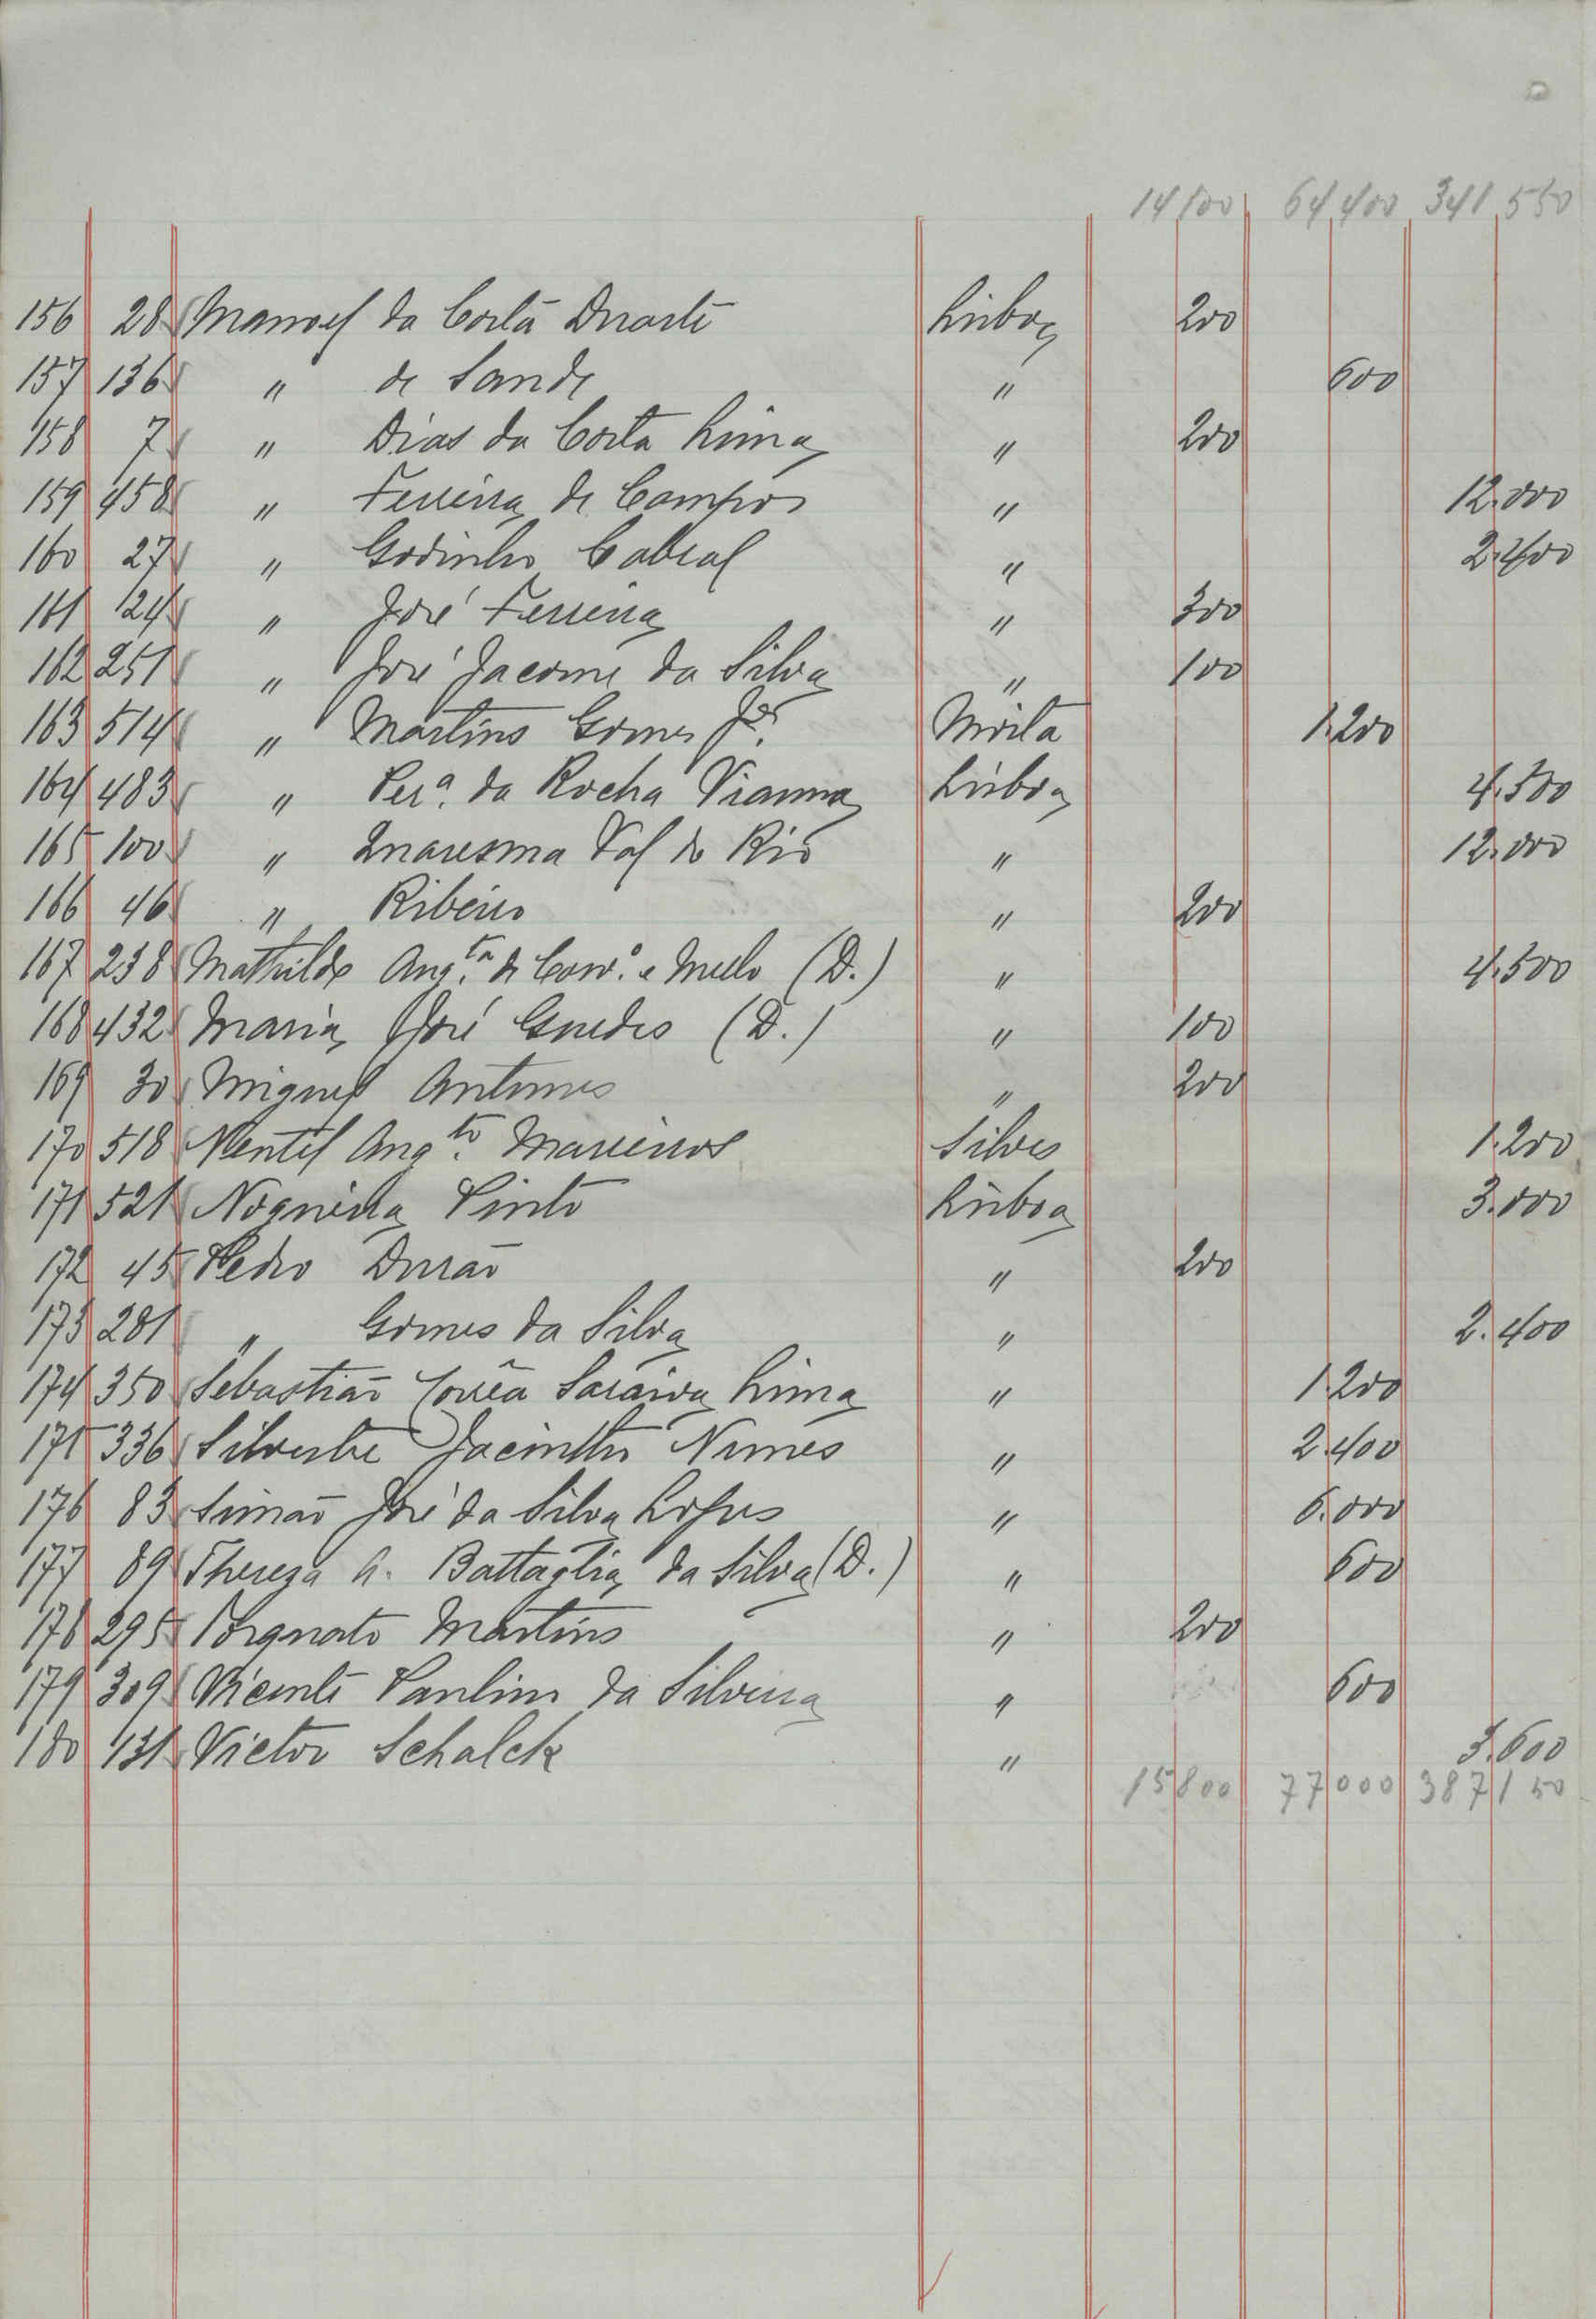 14100 64400 341550
156 28 Manoel da Costa Duarte Lisboa 200
157 136 " de Sande " 600
158 7 " Dias da Costa Lima " 200
159 458 " Ferreira de Campos " 12.000
160 27 " Godinho Cabral " 2.400
161 24 " José Ferreira " 300
162 251 " José Jacome da Silva " 100
163 514 " Martins Gomes Jor. Moita 1.200
164 483 " Per.a da Rocha Vianna Lisboa 4.500
165 100 " Quaresma Val do Rio " 12.000
166 46 " Ribeiro " 200
167 238 Mathilde Aug.ta de Corv.o e Mello (D.) " 4.500
168 432 Maria José Guedes (D.) " 100
169 30 Miguel Antunes " 200
170 518 Aug.to Marreiros Silves 1.200
171 521 Nogueira Pinto Lisboa 3.000
172 45 Pedro Durão " 200
173 281 " Gomes da Silva " 2.400
174 350 Sebastião Corrêa Saraiva Lima " 1.200
175 336 Silvestre Jacintho Nunes " 2.400
176 83 Simão José da Silva Lopes " 6.000
177 89 Thereza A. Battaglia da Silva (D.) " 600
178 295 Torquato Martins " 200
179 309 Vicente Paulino da Silveira " 600
180 131 Victor Schalck " 3.600
15800 77000 387150